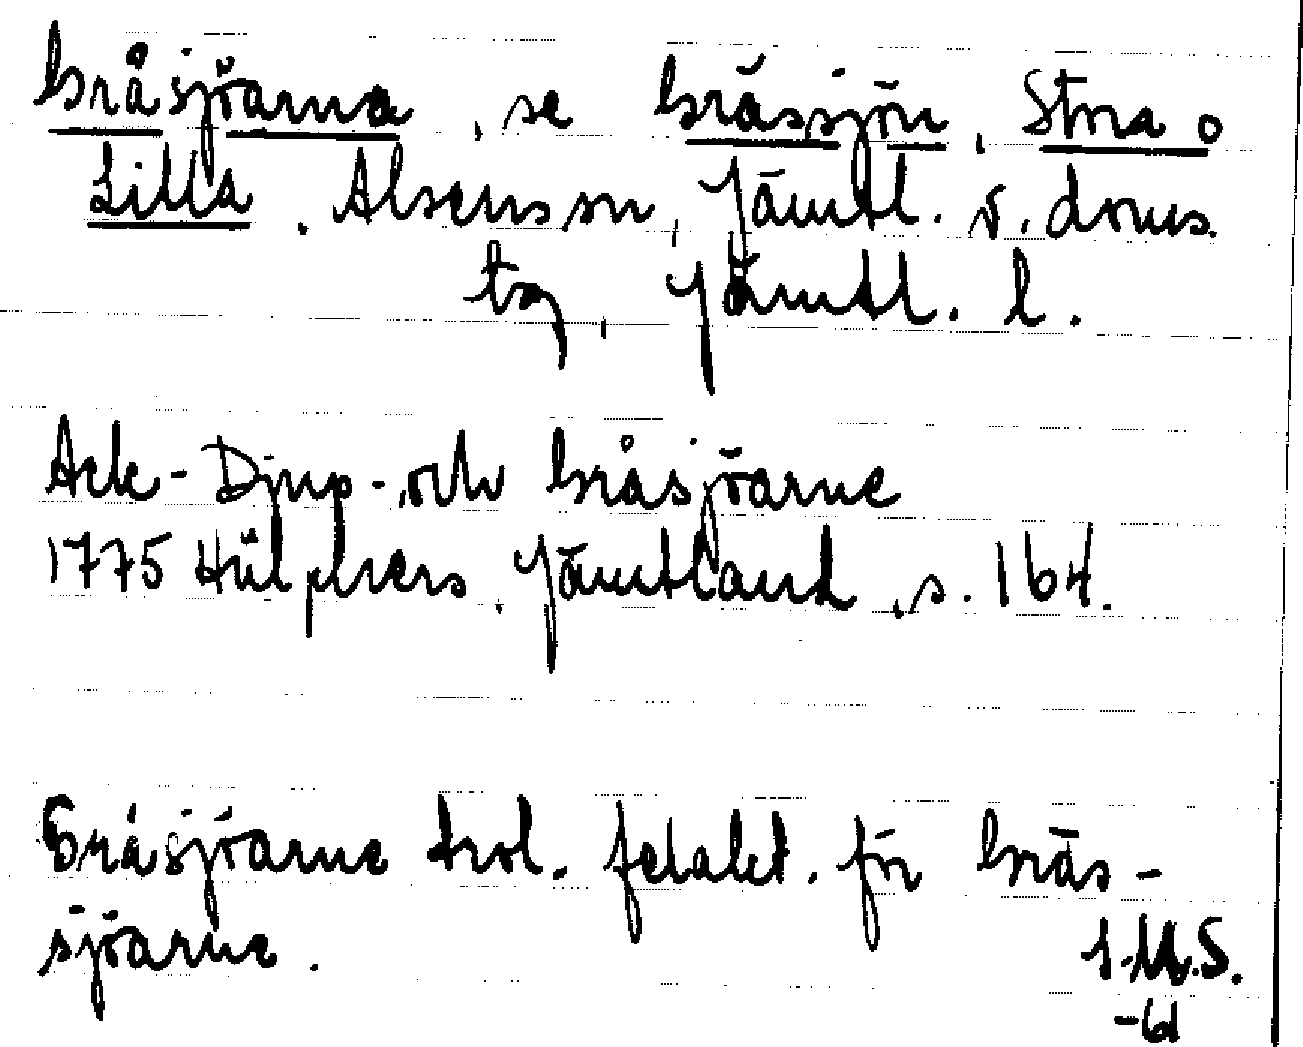 Gråsjöarna, se Grässjön, Stora o
Lilla. Alsens sn, Jämtl. v. doms.
tg, Jämtl. l.
Ack- Djup- och Gråsjöarne
1775 Hülphers, Jämtland, s. 164.
Gråsjöarne trol. felakt. för Gräs-
sjöarne.
I.M.S.
-61